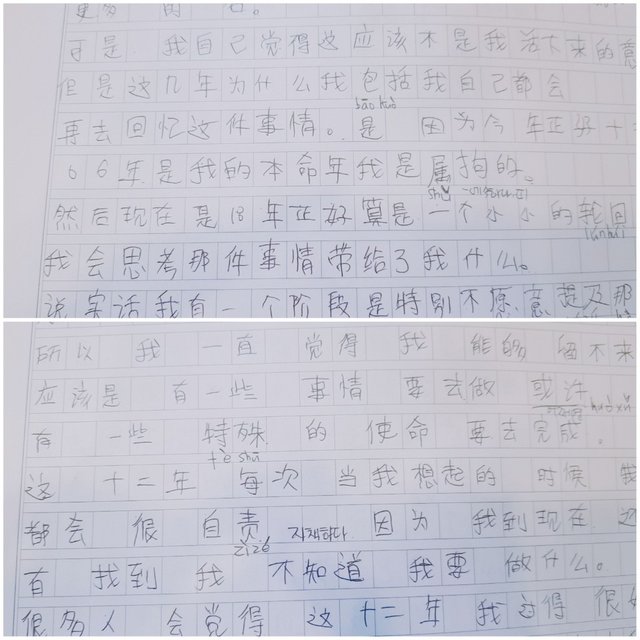 更多
可是 我自己觉得这应该不是我活下来的意
但是这几年为什么我包括我自己都会
bāo kuò
再去回忆这件事情。是 因为今年正好十
06年是我的本命年我是属狗的。
shǔ
然后现在是18年正好算是一个小小的轮回
lúnhuí
我会思考那件事情带给了我什么。
说实话我有一个阶段是特别不愿意提及那
所以 我 一直 觉得 我 能够 留下来
应该是 有一些 事情 要去做 或许
huòxǔ
有 一些 特殊 的 使命 要去完成。
tè shū
这 十二年 每次 当我想起的 时候 我
都会 很 自责 자책하다 因为 我到现在 还
zìzé
有 找到 我 不知道 我要 做什么。
很多人 会觉得 这十二年 我过得 很好